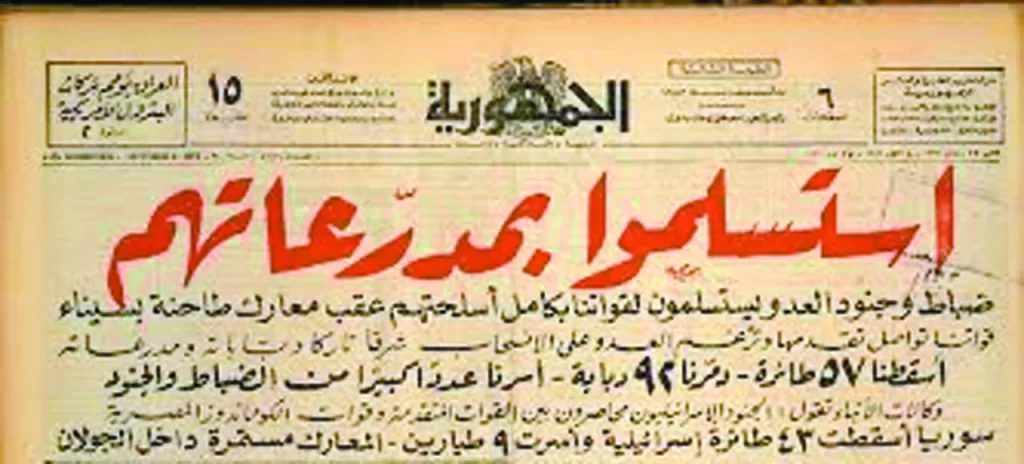 الجمهورية
١٥
٦
العراق يؤمم شركات
البترول الأمريكية
استسلموا بمدرّعاتهم
ضباط وجنود العدو يستسلمون لقواتنا بكامل أسلحتهم عقب معارك طاحنة بسيناء
قواتنا تواصل تقدمها وترغم العدو على الانسحاب شرقا تاركا دباباته ومدرعاته
أسقطنا ٥٧ طائرة - دمرنا ٩٢ دبابة - أسرنا عددًا كبيرًا من الضباط والجنود
وكالات الأنباء تقول: الجنود الإسرائيليون محاصرون بين القوات المتقدمة وقوات الكوماندوز المصرية
سوريا أسقطت ٤٣ طائرة إسرائيلية وأسرت ٩ طيارين - المعارك مستمرة داخل الجولان